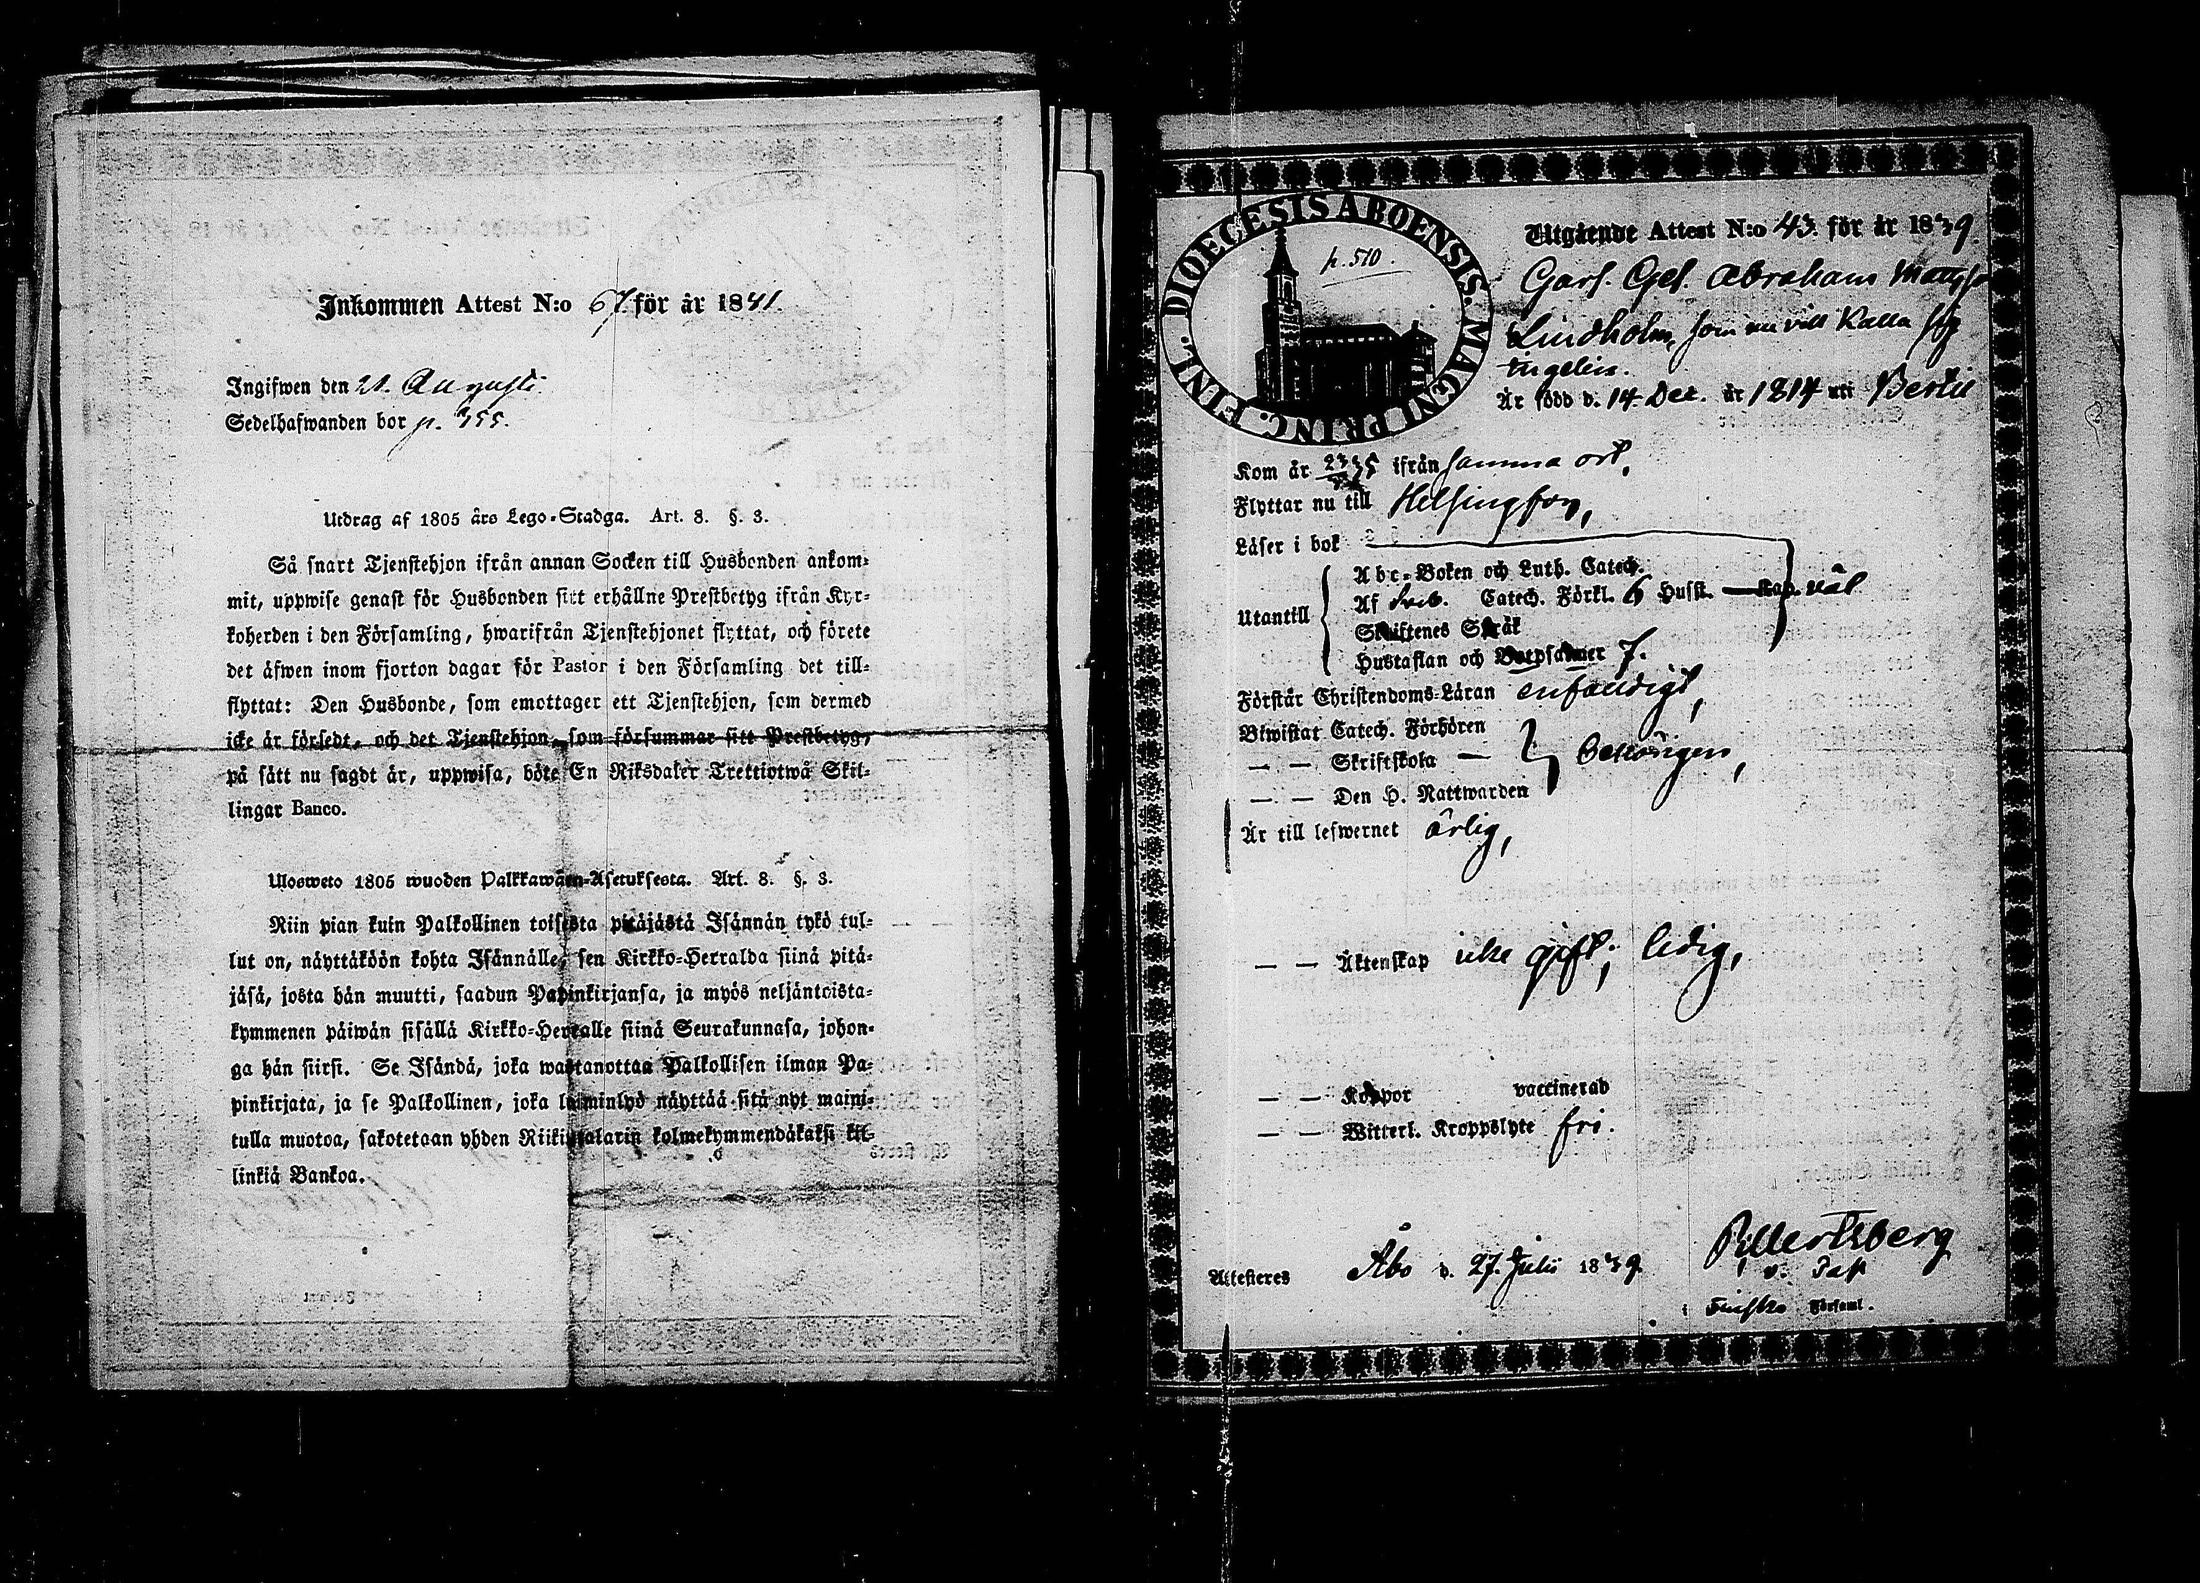 Inkommen Attest N:o 67. för år 1841.
Ingifwen den 21. Augusti.
Sedelhafwanden bor p. 355.
Utdrag af 1805 års Lego-Stadga. Art. 8. §. 3.
Så snart Tjenstehjon ifrån annan Socken till Husbonden ankom-
mit, uppwise genast för Husbonden sitt erhållne Prestbetyg ifrån Kyr-
koherden i den Församling, hwarifrån Tjenstehjonet flyttat, och förete
det äfwen inom fjorton dagar för Pastor i den Församling det till-
flyttat: Den Husbonde, som emottager ett Tjenstehjon, som dermed
icke är försedt, och det Tjenstehjon, som försummar sitt Prestbetyg,
på sätt nu sagdt är, uppwisa, böte En Riksdaler Trettiotwå Skil-
lingar Banco.
Ulosweto 1805 wuoden Palkkawäen-Asetuksesta. Art. 8. §. 3.
Niin pian kuin Palkollinen toisesta pitäjästä Isännän tykö tul-
lut on, näyttäköön kohta Isännälle, sen Kirkko-Herralda siinä pitä-
jäsä, josta hän muutti, saadun Papinkirjansa, ja myös neljäntoista-
kymmenen päiwän sisällä Kirkko-Herralle siinä Seurakunnasa, johon-
ga hän siirsi. Se Isändä, joka wastanottaa Palkollisen ilman Pa-
pinkirjata, ja se Palkollinen, joka laiminlyö näyttää sitä nyt maini-
tulla muotoa, sakotetaan yhden Riikintalarin kolmekymmendäkaksi kil-
linkiä Bankoa.
DIOECESIS ABOENSIS. MAGNI PRINC. FINL.
p. 510.
Utgående Attest N:o 43. för år 1839.
Garf. Ges. Abraham Matts
Lindholm, som nu vill kalla sig
Är född d. 14. Dec. år 1814 uti
Kom år ifrån samma ort,
Flyttar nu till Helsingfors,
Läser i bok
Utantill
Abc-Boken och Luth. Catech.
Af Catech. Förkl. 6 Hufst. — Kap. väl
Skriftenes Språk
Hustaflan och Botpsalmer 7.
Förstår Christendoms-Läran enfaldigt,
Biwistat Catech. Förhören
— — Skriftskola — behörigen,
— — Den H. Nattwarden
Är till lefwernet ärlig,
— — Äktenskap icke gift; ledig,
— — Koppor vaccinerad
— — Witterl. Kroppslyte fri.
Attesteres Åbo d. 27. Julii 1839.
v. Past
i Finska Församl.